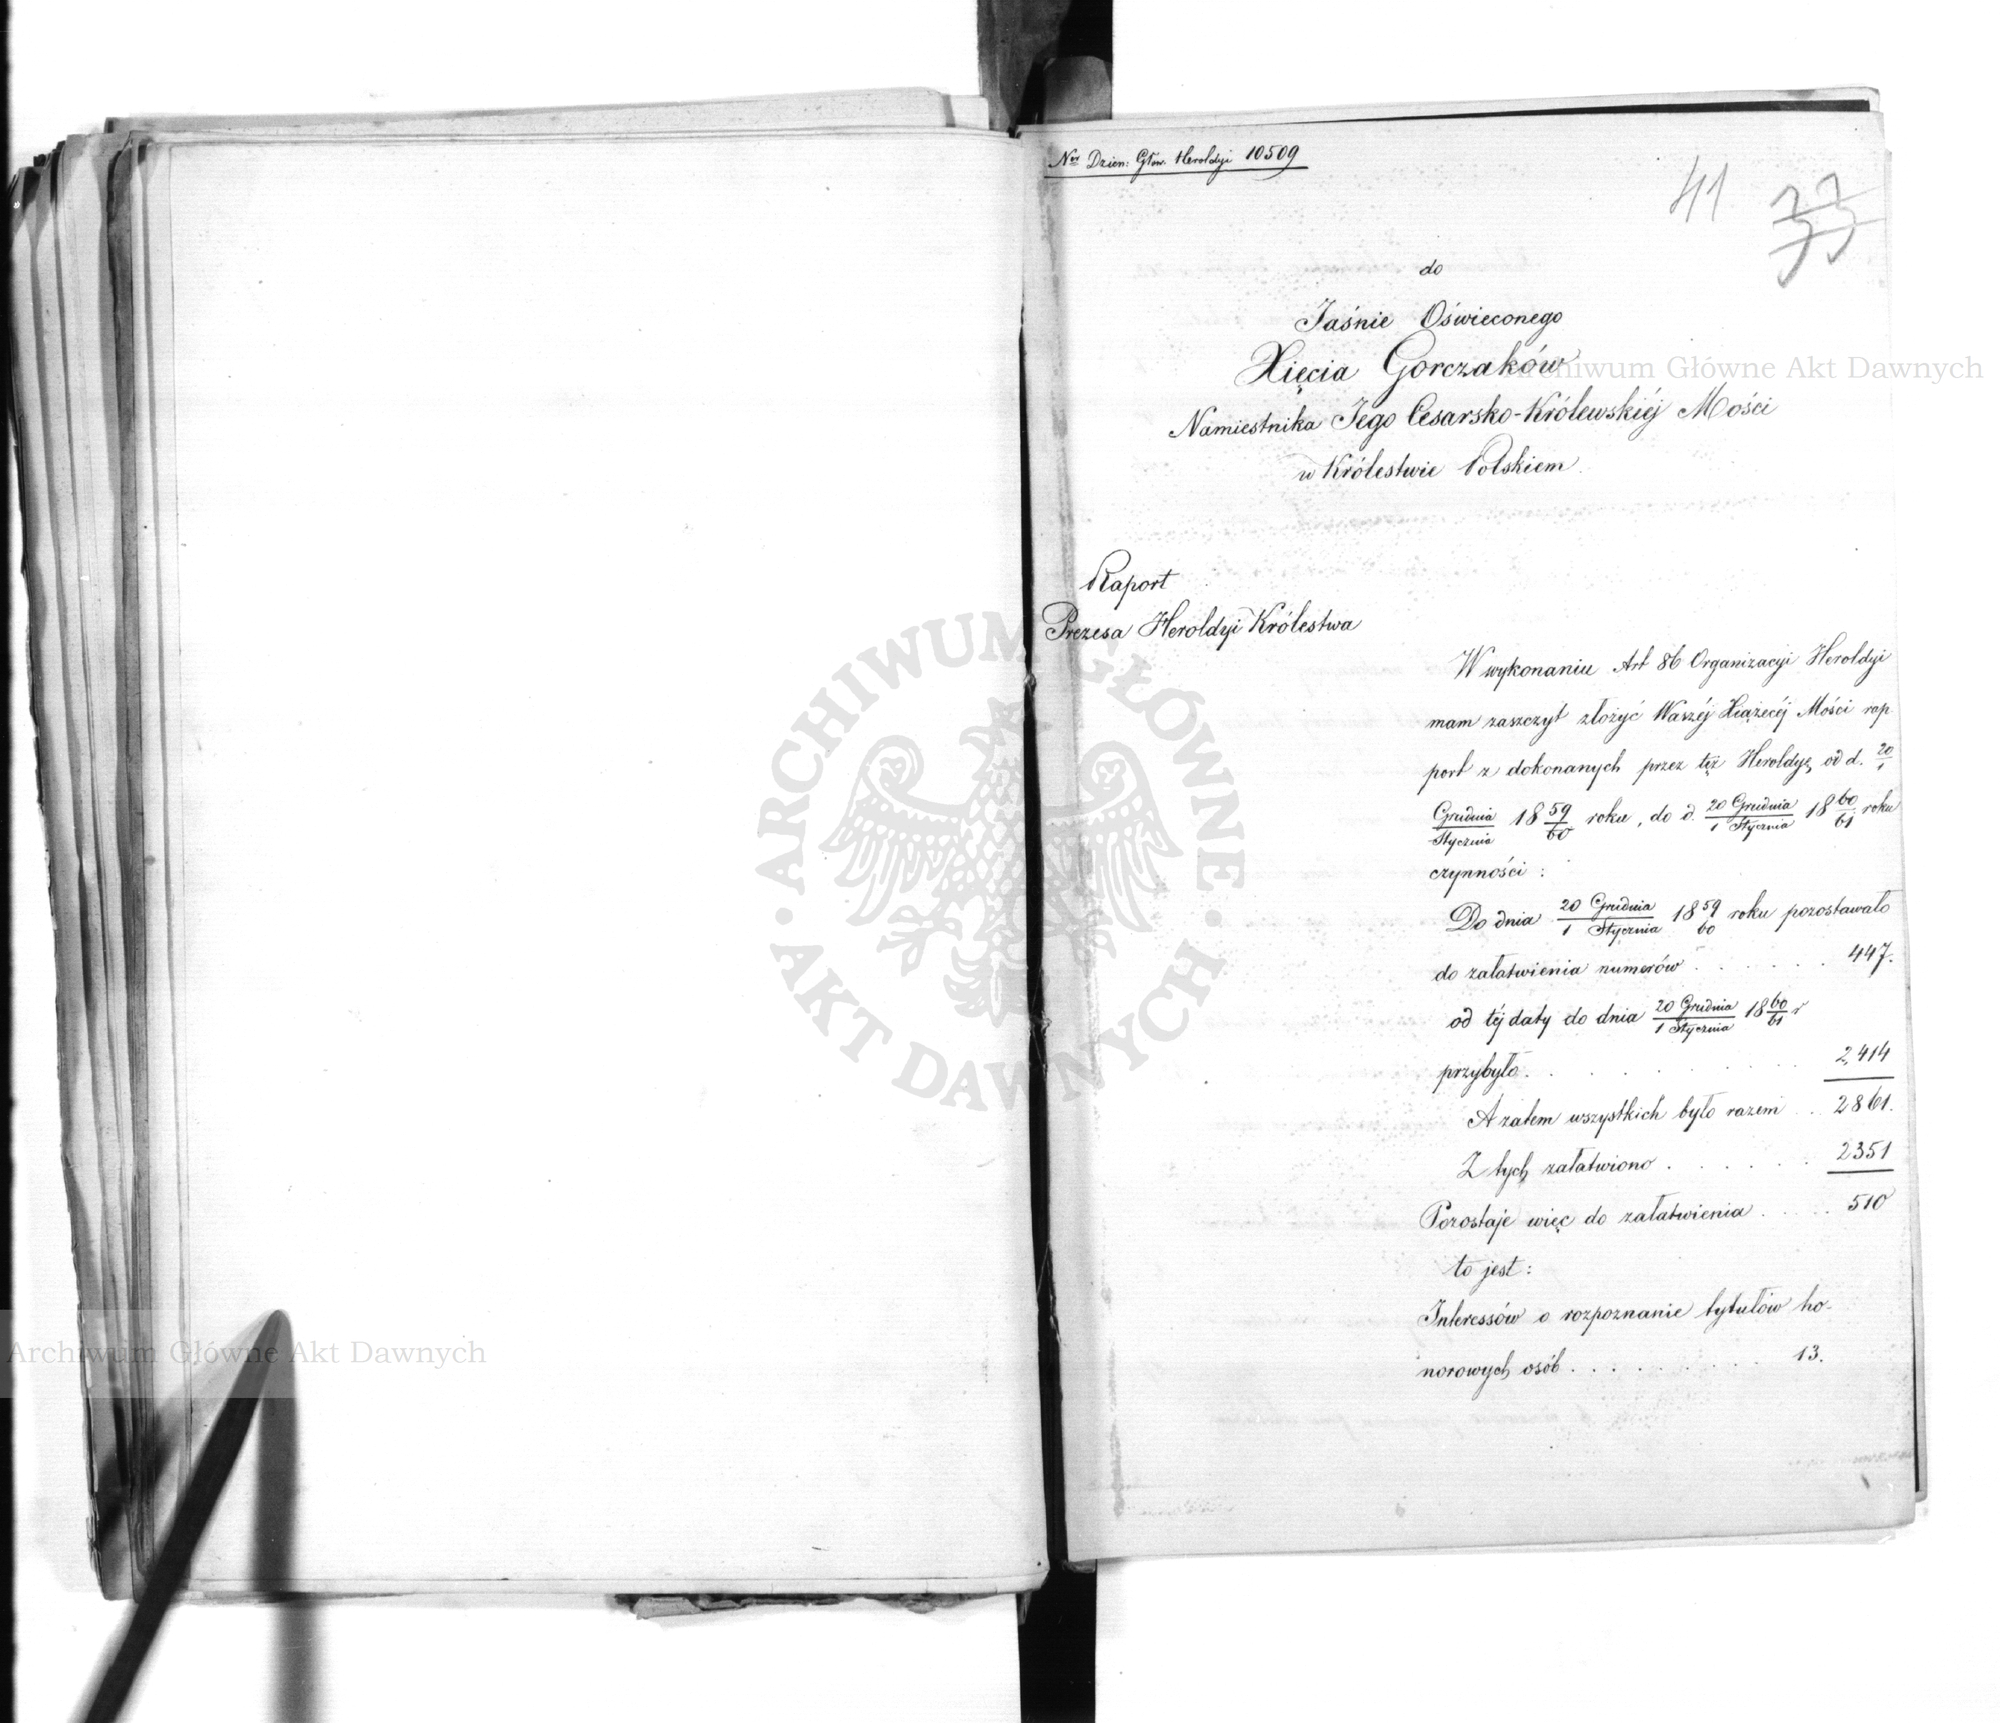 Nor Dzien: Głów. Heroldyi 10509
41 33
do
Jaśnie Oświeconego
Xięcia Gorczaków
Archiwum Główne Akt Dawnych
Namiestnika Jego Cesarsko-Królewskiéj Mości
w Królestwie Polskiem
Raport
Prezesa Heroldyi Królestwa
W wykonaniu Art 86 Organizacyi Heroldyi
mam zaszczyt złożyć Waszéj Xiążecéj Mości rap-
port z dokonanych przez też Heroldyę od d. 20/1
Grudnia/Stycznia 18 59/60 roku, do d. 20 Grudnia/1 Stycznia 18 60/61 roku
czynności:
Do dnia 20 Grudnia/1 Stycznia 18 59/60 roku pozostawało
do załatwienia numerów . . . . . . . 447.
od téj daty do dnia 20 Grudnia/1 Stycznia 18 60/61 r
przybyło . . . . . . . . . . . 2,414
A zatem wszystkich było razem . . 2861.
Z tych załatwiono . . . . . . 2351
Pozostaje więc do załatwienia . . . . . 510
to jest:
Interessów o rozpoznanie tytułów ho-
norowych osób . . . . . . . . . . 13.
ARCHIWUM GŁÓWNE · AKT DAWNYCH ·
Archiwum Główne Akt Dawnych